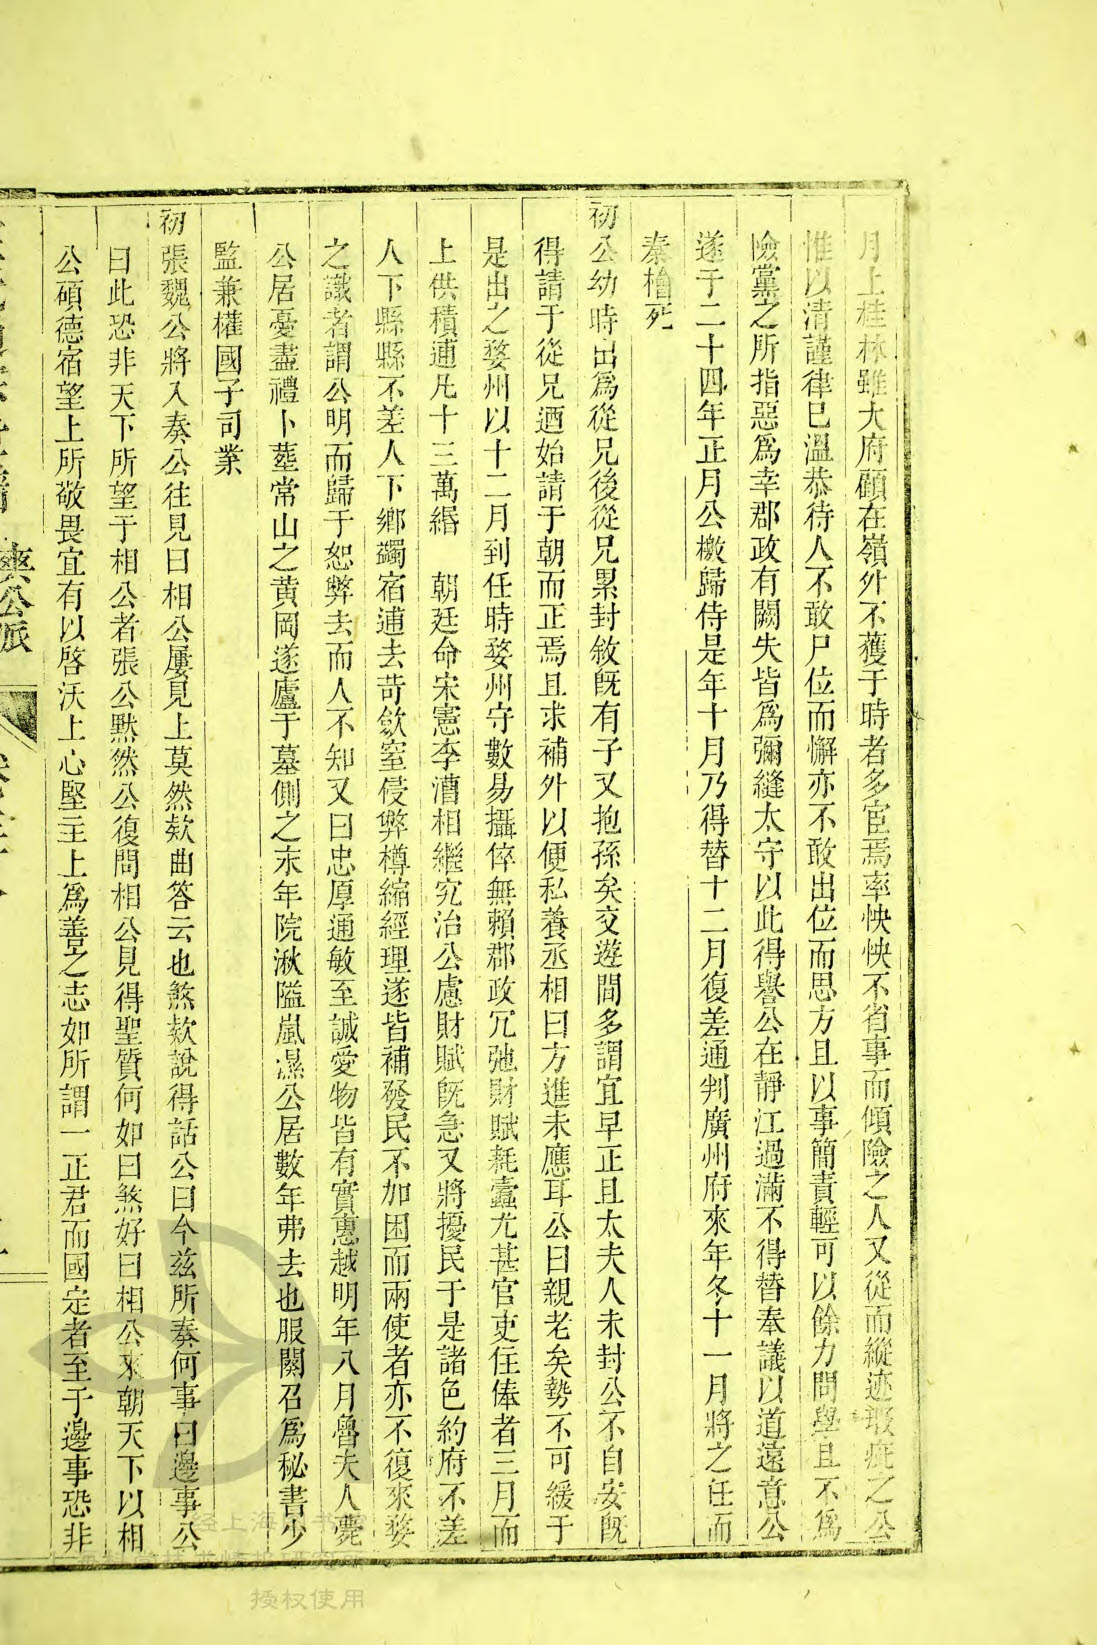 月上桂林雖大府顧在嶺外不獲于時者多宦焉率怏怏不省事而傾險之人又從而縱迹瑕疵之公
惟以清謹律已溫恭待人不敢尸位而懈亦不敢出位而思方且以事簡責輕可以餘力問學且不爲
險黨之所指惡爲幸郡政有闕失皆爲彌縫太守以此得譽公在靜江過滿不得替奉議以道遠意公
遂于二十四年正月公檄歸侍是年十月乃得替十二月復差通判廣州府來年冬十一月將之任而
秦檜死
初公幼時出爲從兄後從兄累封敘旣有子又抱孫矣交遊間多謂宜早正且太夫人未封公不自安旣
得請于從兄迺始請于朝而正焉且求補外以便私養丞相曰方進未應耳公曰親老矣勢不可緩于
是出之婺州以十二月到任時婺州守數易攝倅無賴郡政冗弛財賦耗蠹尤甚官吏住俸者三月而
上供積逋凡十三萬緡 朝廷命宋憲李漕相繼究治公慮財賦旣急又將擾民于是諸色約府不差
人下縣縣不差人下鄉蠲宿逋去苛歛窒侵弊樽縮經理遂皆補發民不加困而兩使者亦不復來婺
之識者謂公明而歸于恕弊去而人不知又曰忠厚通敏至誠愛物皆有實惠越明年八月魯夫人薨
公居憂盡禮卜塟常山之黃岡遂廬于墓側之末年院湫隘嵐濕公居數年弗去也服闋召爲秘書少
監兼權國子司業
初張魏公將入奏公往見曰相公屢見上莫然欵曲答云也煞欵說得話公曰今玆所奏何事曰邊事公
曰此恐非天下所望于相公者張公默然公復問相公見得聖質何如曰煞好曰相公來朝天下以相
公碩德宿望上所敬畏宜有以啓沃上心堅主上爲善之志如所謂一正君而國定者至于邊事恐非
公派
授权使用